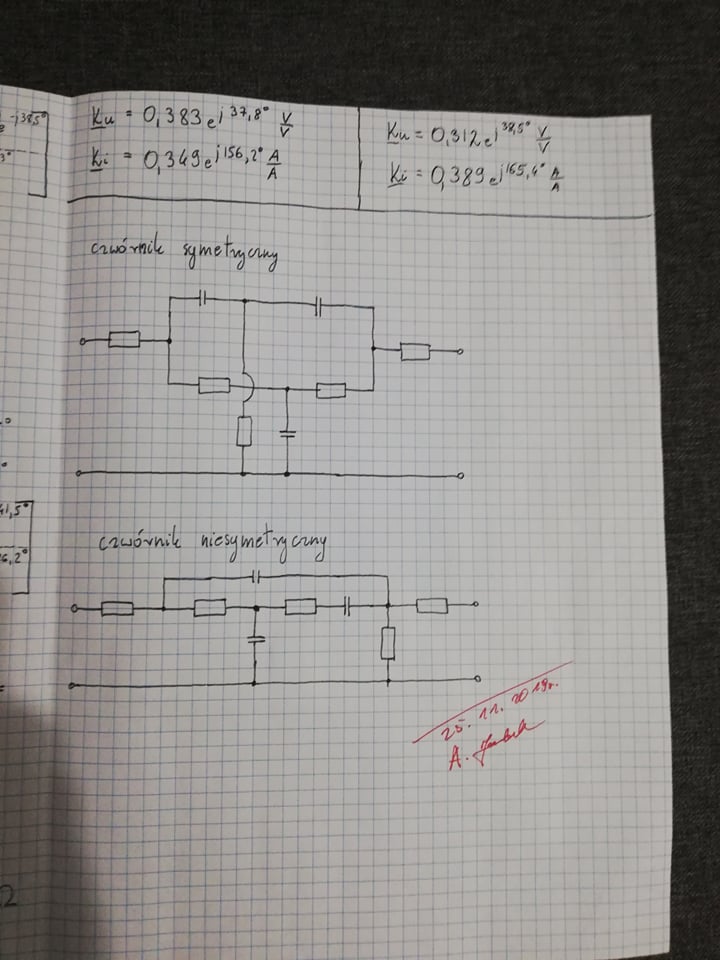 -j38,5°
3°
Ku = 0,383 e j37,8° V/V
Ki = 0,349 e j156,2° A/A
Ku = 0,312 e j38,5° V/V
Ki = 0,389 e j165,4° A/A
czwórnik symetryczny
41,5°
6,2°
czwórnik niesymetryczny
25.11.2019r.
A.
2